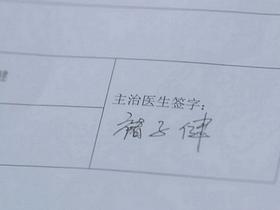 健
主治医生签字:
褚子健